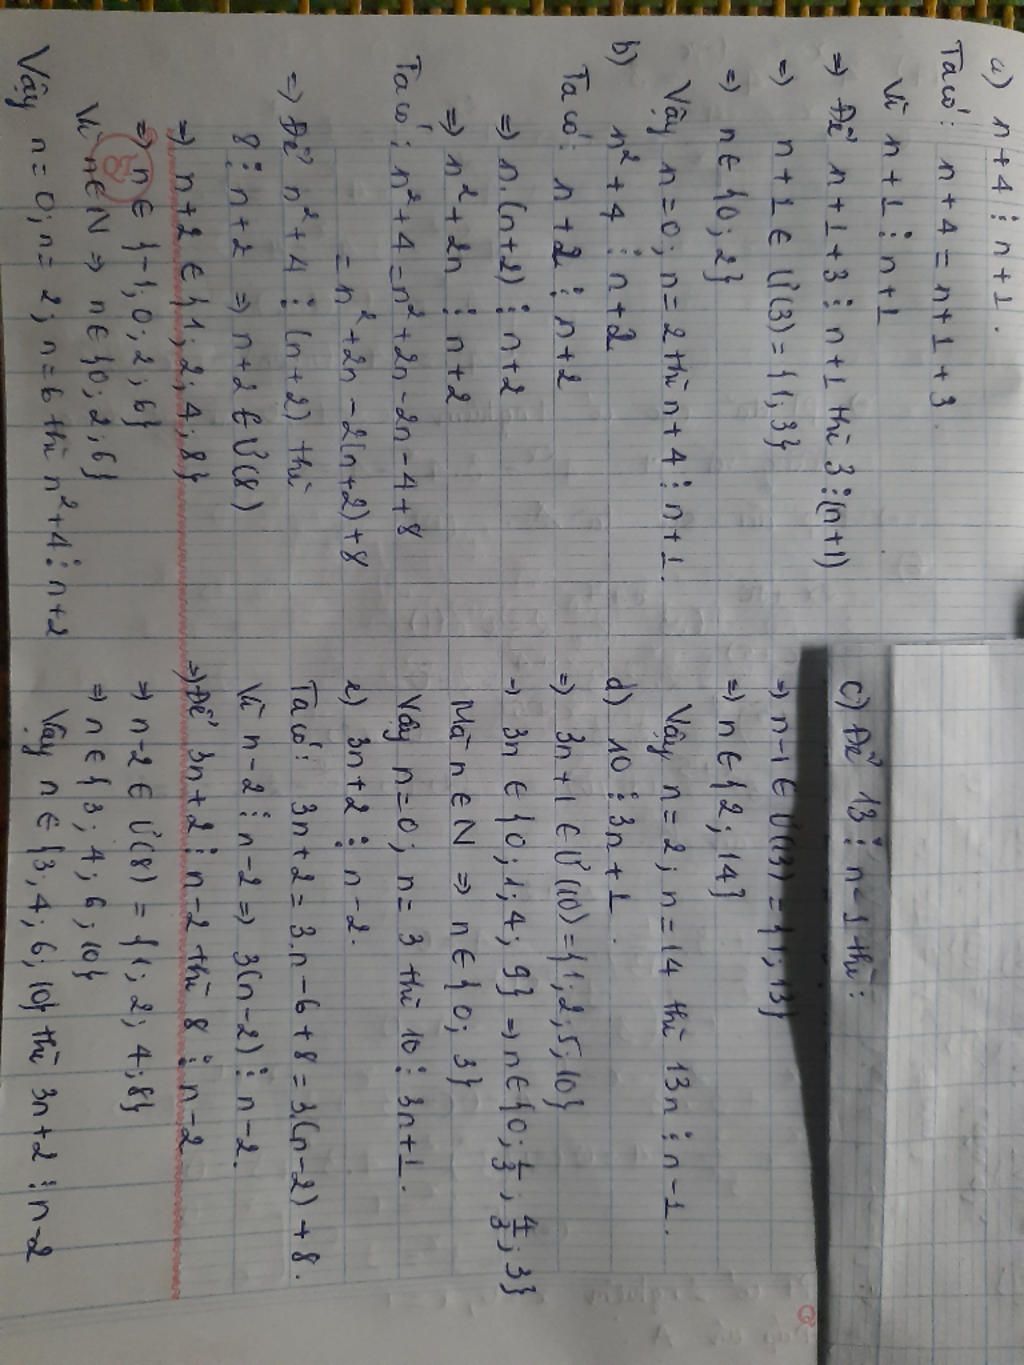 a) n+4 ⋮ n+1.
Ta có: n+4 = n+1+3.
Vì n+1 ⋮ n+1
⇒ Để n+1+3 ⋮ n+1 thì 3 ⋮ (n+1)
⇒ n+1 ∈ Ư(3) = {1;3}
⇒ n ∈ {0;2}
Vậy n=0; n=2 thì n+4 ⋮ n+1.
b) n²+4 ⋮ n+2
Ta có: n+2 ⋮ n+2
⇒ n.(n+2) ⋮ n+2
⇒ n²+2n ⋮ n+2
Ta có: n²+4 = n²+2n-2n-4+8
= n²+2n-2(n+2)+8
⇒ Để n²+4 ⋮ (n+2) thì
8 ⋮ n+2 ⇒ n+2 ∈ Ư(8)
⇒ n+2 ∈ {1;2;4;8}
⇒ n ∈ {-1;0;2;6}
Vì n ∈ N ⇒ n ∈ {0;2;6}
Vậy n=0; n=2; n=6 thì n²+4 ⋮ n+2
c) Để 13 ⋮ n-1 thì:
⇒ n-1 ∈ Ư(13) = {1;13}
⇒ n ∈ {2;14}
Vậy n=2; n=14 thì 13n ⋮ n-1.
d) 10 ⋮ 3n+1.
⇒ 3n+1 ∈ Ư(10) = {1;2;5;10}
→ 3n ∈ {0;1;4;9} ⇒ n ∈ {0; 1/3; 4/3; 3}
Mà n ∈ N ⇒ n ∈ {0;3}
Vậy n=0; n=3 thì 10 ⋮ 3n+1.
e) 3n+2 ⋮ n-2.
Ta có: 3n+2 = 3.n-6+8 = 3.(n-2)+8.
Vì n-2 ⋮ n-2 ⇒ 3(n-2) ⋮ n-2.
⇒ Để 3n+2 ⋮ n-2 thì 8 ⋮ n-2
⇒ n-2 ∈ Ư(8) = {1;2;4;8}
⇒ n ∈ {3;4;6;10}
Vậy n ∈ {3;4;6;10} thì 3n+2 ⋮ n-2